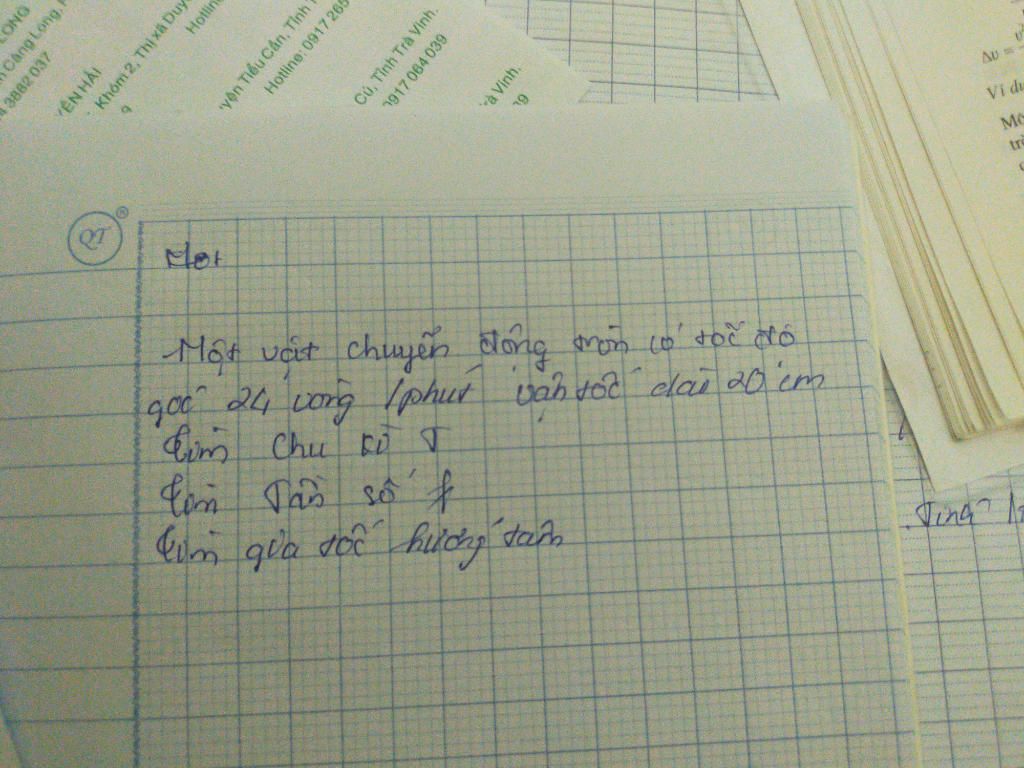 LONG
n Càng Long,
3882 037
YÊN HẢI
Khóm 2, Thị xã Duy
Hotline: 0917
yện Tiểu Cần, Tỉnh
Hotline: 0917 265
Cú, Tỉnh Trà Vinh.
0917 064 039
rà Vinh.
Δv =
Ví dụ
QT
®
Một
Một vật chuyển động tròn có tốc độ
góc 24 vòng /phút vận tốc dài 20 cm
tìm chu kì T
tìm Tần số f
tìm gia tốc hướng tâm
Tính